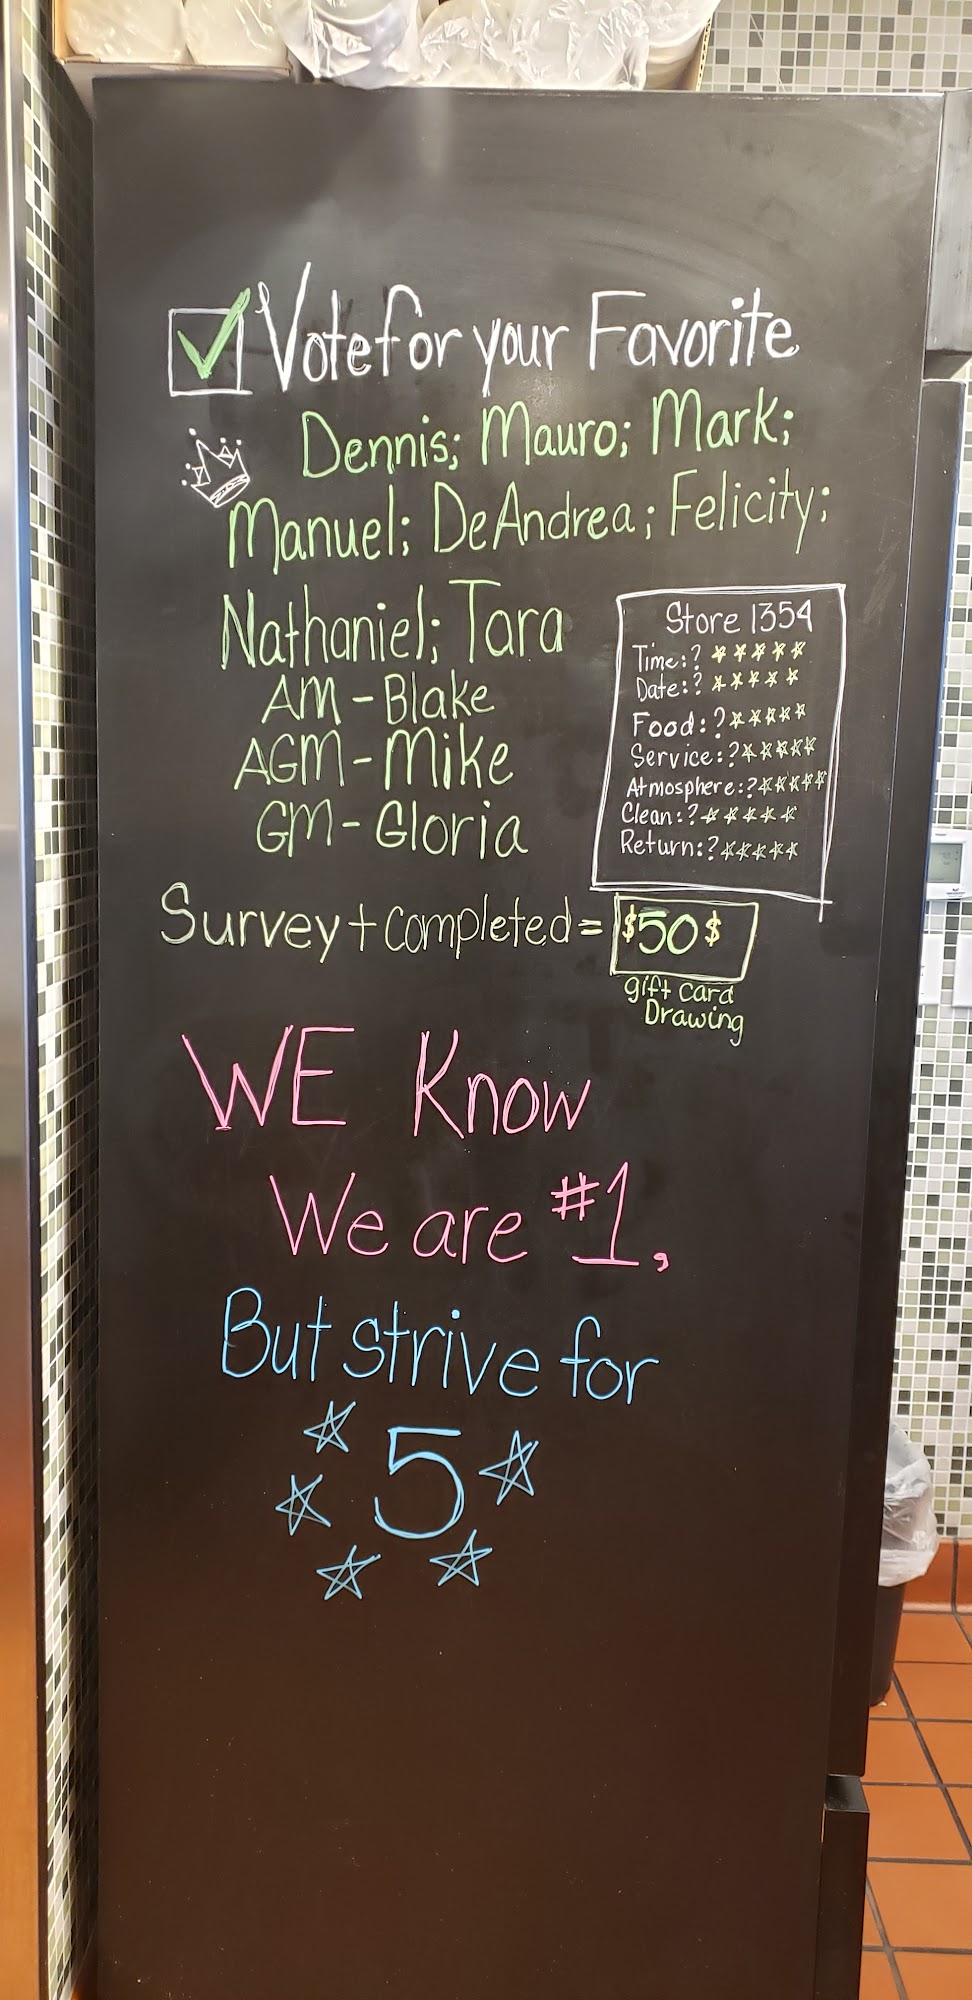 Vote for your Favorite
Dennis; Mauro; Mark;
Manuel; DeAndrea; Felicity;
Nathaniel; Tara
AM - Blake
AGM - Mike
GM - Gloria
Store 1354
Time:?
Date:?
Food:?
Service:?
Atmosphere:?
Clean:?
Return:?
Survey + completed = $50$
gift card
Drawing
WE Know
We are #1,
But strive for
5